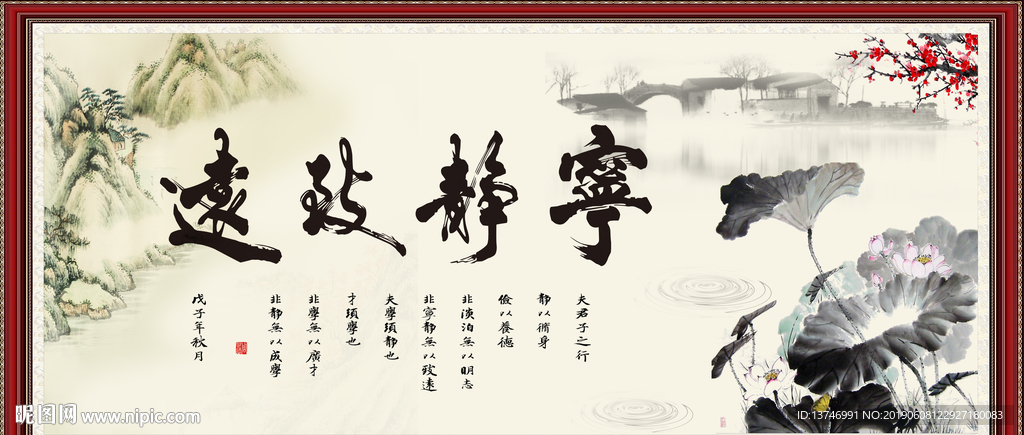 寧靜致遠
夫君子之行
靜以脩身
儉以養德
非淡泊無以明志
非寧靜無以致遠
夫學須靜也
才須學也
非學無以廣才
非靜無以成學
戊子年秋月
昵图网 www.nipic.com
ID:13746991 NO:20190608122927180083